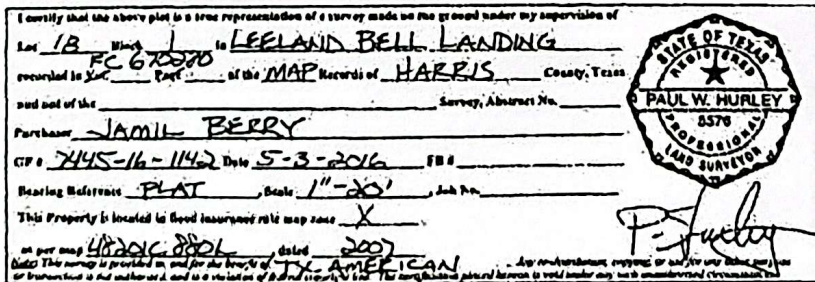 I certify that the above plot is a true representation of a survey made on the ground under my supervision of
Lot 1B Block 1 in LEELAND BELL LANDING
FC 670280
recorded in Vol. Page of the MAP Records of HARRIS County, Texas
and out of the Survey, Abstract No.
Purchaser JAMIL BERRY
GF # 7445-16-1142 Date 5-3-2016 FB #
Bearing Reference PLAT, Scale 1"-20', Job No.
This Property is located in flood insurance rate map zone X
as per map 48201C 880L dated 2007
Note: This survey is provided in and for the benefit of TX. AMERICAN
STATE OF TEXAS
REGISTERED
PAUL W. HURLEY
5576
PROFESSIONAL
LAND SURVEYOR
P. Hurley